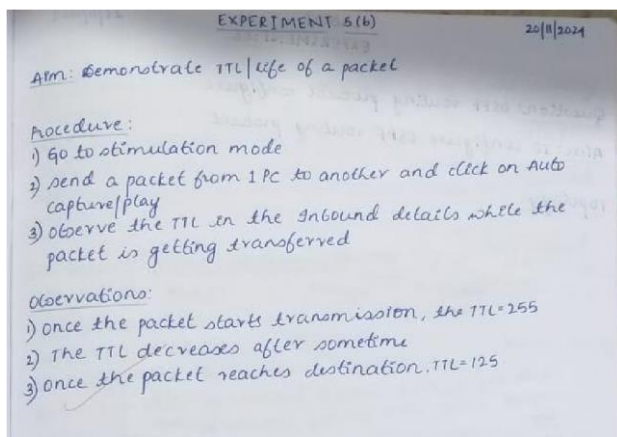 EXPERIMENT 5(b)
20/11/2024
AIM: Demonstrate TTL/life of a packet
Procedure:
1) Go to stimulation mode
2) send a packet from 1 PC to another and click on Auto
capture/play
3) observe the TTL in the Inbound details while the
packet is getting transferred
observations:
1) once the packet starts transmission, the TTL=255
2) The TTL decreases after sometime
3) once the packet reaches destination, TTL=125